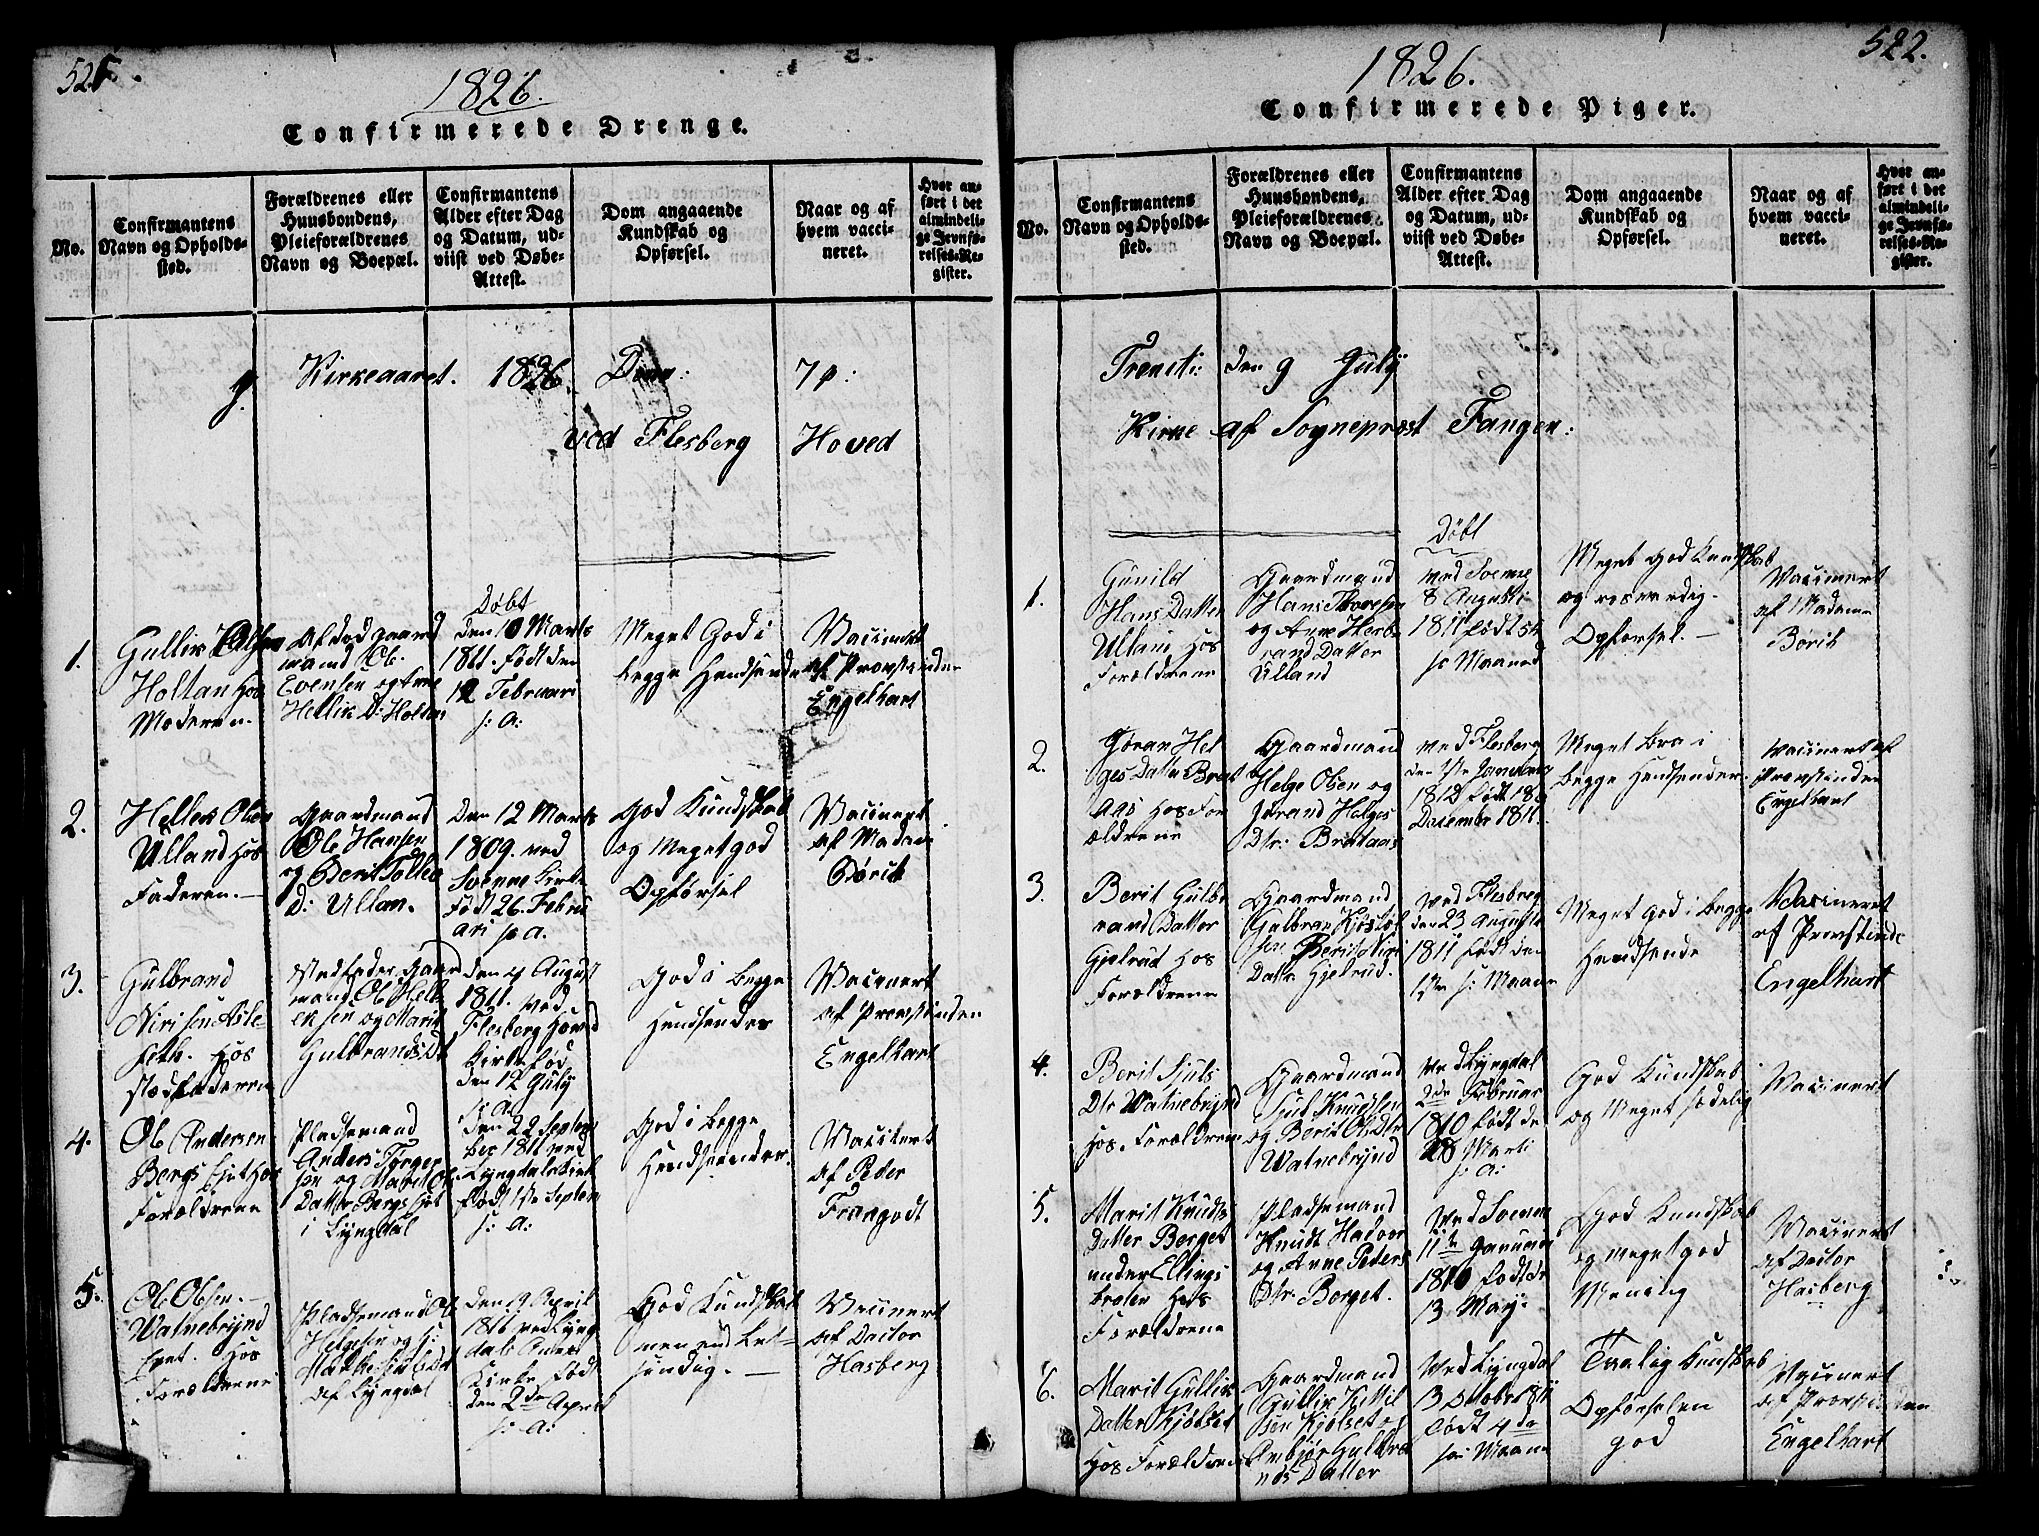 521
1826.
Confirmerede Drenge.
No.
Confirmantens
Navn og Opholds-
sted.
Forældrenes eller
Huusbondens,
Pleieforældrenes
Navn og Boepæl.
Confirmantens
Alder efter Dag
og Datum, ud-
viist ved Døbe-
Attest.
Dom angaaende
Kundskab og
Opførsel.
Naar og af
hvem vacci-
neret.
Hvor an-
ført i det
almindeli-
ge Jevnfø-
relses-Re-
gister.
Kirkeaaret. 1826. Dom: 7 p:
ved Flesberg Hoved
1.
Gullik Olsen
Holtan hos
Moderen.
Afdød gaard
mand Ole
Evensen og Anne
Hellik D: Holtan
Døbt
den 10 Marts
1811. født den
12 Februari
s: a:
Meget God i
begge Hendseende
Vacineret
af Provstinden
Engelhart
2.
Hellek Olsen
Ulland hos
Faderen.
Gaardmand
Ole Hansen
og Berit Tollef
D: Ullan.
Den 12 Marts
1809. ved
Svenne Kirke
født 26. Febru
ari s: a.
God Kundskab
og Meget god
Opførsel
Vacineret
af Madam
Børik
3.
Gulbrand
Nirisen Aste
seth. hos
stedfaderen
Stedfader Gaard
mand Ole Hell
eksen og Marit
Gulbrandsdt
den 4 August
1811. ved
Flesberg Hoved
Kirke fød
den 12 July
s: a:
God i begge
Hendseender
Vacineret
af Provstinden
Engelhart
4.
Ole Andersen
Bergs Ejet hos
Forældrene
Pladsemand
Anders Torger
sen og Marit Ols
Datter Bergs Ejet
i Lyngdal
den 22 Septem
ber 1811 ved
Lyngdals Kirk
født 1ste Septem
s: a:
God i begge
Hendseender.
Vacinert
af Peder
Frangodt
5.
Ole Olsen.
Watnebrynd
Eyet. hos
Forældrene
Pladsemand Ole
Helgesen og
af Lyngdal
den 19 April
1811 ved Lyng
dals Anex
Kirke født
den 2de April
s: a:
God Kundskab
men end Let-
sindig.
Vacinert
af Doctor
Hasberg
522.
1826.
Confirmerede Piger.
No.
Confirmantens
Navn og Opholds-
sted.
Forældrenes eller
Huusbondens,
Pleieforældrenes
Navn og Boepæl.
Confirmantens
Alder efter Dag
og Datum, ud-
viist ved Døbe-
Attest.
Dom angaaende
Kundskab og
Opførsel.
Naar og af
hvem vacci-
neret.
Hvor an-
ført i det
almindeli-
ge Jevnfø-
relses-Re-
gister.
Treniti: den 9 July
Kirke af Sognepræst Fangen:
1.
Gunild
Hans Datter
Ullan hos
Forældrene
Gaardmand
Hans Thoresen
og Anne Herb
rand Datter
Ulland
Døbt
ved Svenne
8 Augusti
1811 født
s: Maaned
Meget God Kundskab
og roesverdig
Opførsel.
Vacinert
af Madame
Børik
2.
Jøran Hel
ges Datter Brat
Aas hos For
ældrene
Gaardmand
Helge Olsen og
Jørand Helges
Dtr: Brataas
ved Flesberg
den 1ste Januari
1812 født 18
Desember 1811.
Meget bra i
begge Hendseender.
Vacinert af
Provstinden
Engelhart
3.
Berit Gulb
rand Datter
Gjelrud hos
Forældrene
Gaardmand
Gulbran
sen Berit Niri
Datter Gjelrud.
ved Flesberg
den 23 Augusti
1811 født den
s: Maaned
Meget God i begge
Hendseende
Vacineret
af Provstinde
Engelhart
4.
Berit Sjuls
Dtr Watnebrynd
hos Forældrene
Gaardmand
Sjul Knudsen
og Berit Ols Dtr
Watnebrynd
ved Lyngdal
2de Februar
1810 født de
28 Marti
s: a:
God Kundskab
og Meget sædelig
Vacinert
5.
Marit Knuds
Datter Berget
under Ellings
brølen hos
Forældrene
Pladsemand
Knudt Halvor
og Anne Peders
Dtr. Berget.
Ved Svenne
11te Januari
1810 født d:
13 May:
God Kundskab
og meget god
Mening
Vacinert
af Doctor
Hasberg
6.
Marit Gullik
Datter Kjølset
hos Forældrene
Gaardmand
Gullik Kittil
sen Kjølset og
Anbjør Guldbra
nds Datter
Ved Lyngdal
13 Octobr 1811
født 4de
s: Maane
Taalig Kundskab
Opførselen
god
Vacinert
af Provstinden
Engelhart